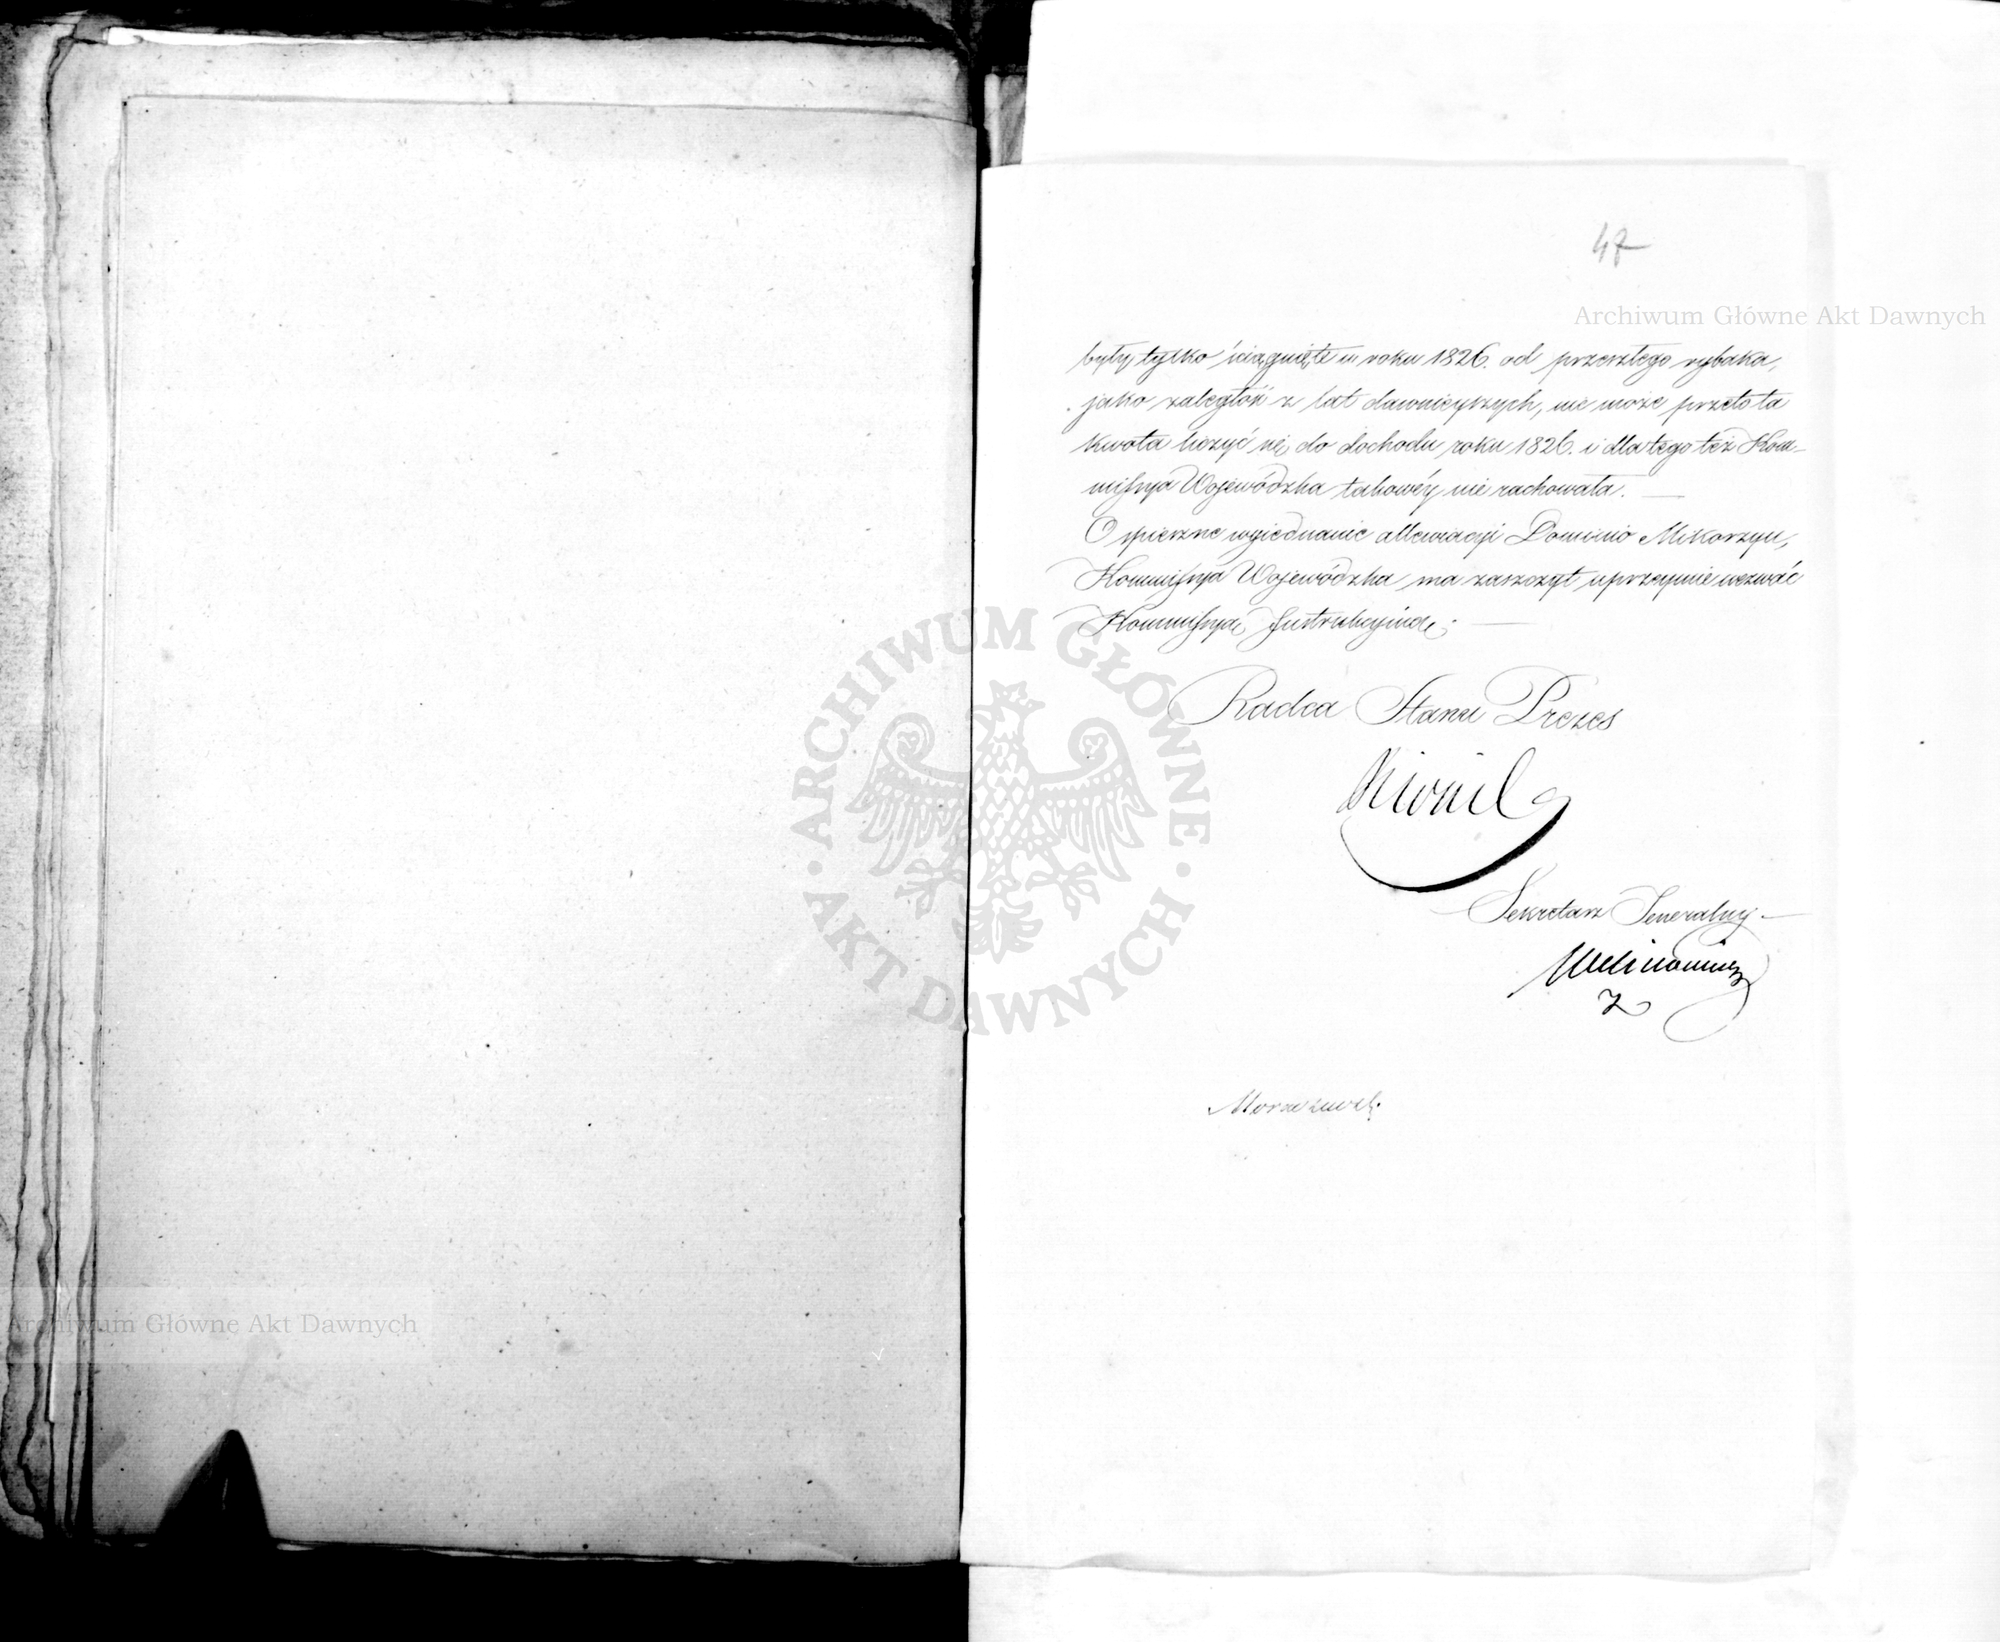 47
Archiwum Główne Akt Dawnych
były tylko ściągnięte w roku 1826. od przeszłego rybaka,
jako zaległość z lat dawnieyszych, nie może przeto ta
kwota liczyć się do dochodu roku 1826. i dla tego też Kom-
missya Wojewódzka takowéy nie rachowała. —
O spieszne wyiednanie allewiacyi Dominio Mikorzyn,
Kommissya Wojewódzka ma zaszczyt uprzeymie wezwać
Kommissyą Instrukcyiną; —
Radca Stanu Prezes
Sekretarz Generalny —
ARCHIWUM GŁÓWNE
· AKT DAWNYCH ·
Archiwum Główne Akt Dawnych